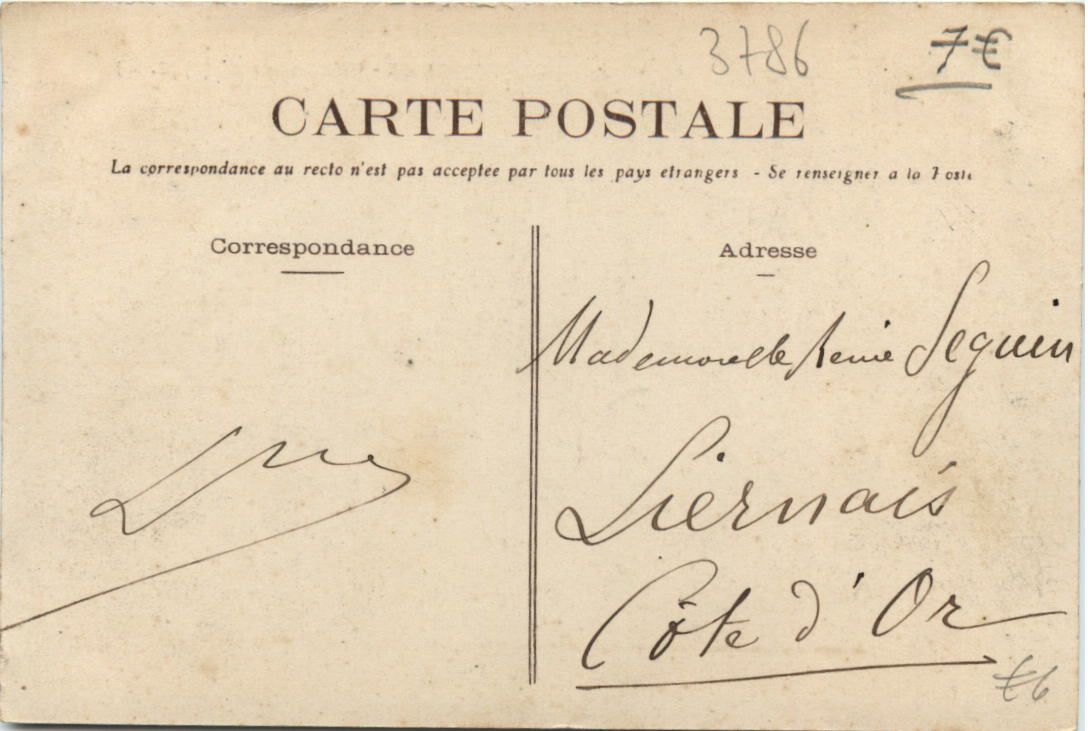 3786
7€
CARTE POSTALE
La correspondance au recto n'est pas acceptée par tous les pays etrangers - Se renseigner a la Poste
Correspondance
Adresse
Mademoiselle Seguin
Liernais
Côte d'Or
€6